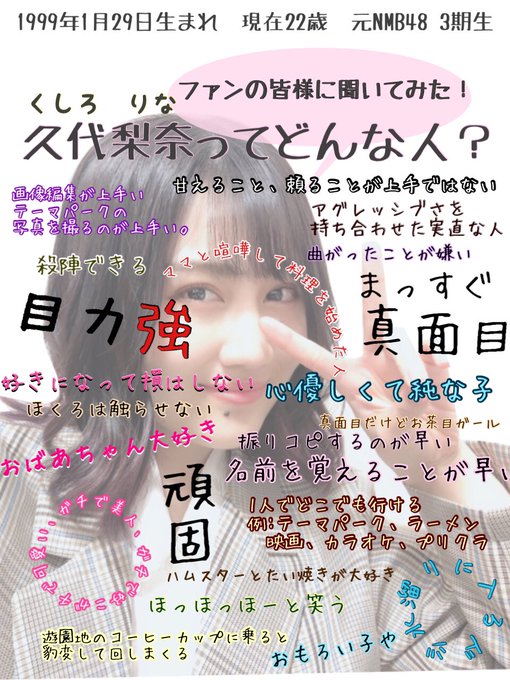 1999年1月29日生まれ 現在22歳 元NMB48 3期生
ファンの皆様に聞いてみた！
くしろ りな
久代梨奈ってどんな人？
甘えること、頼ることが上手ではない
画像編集が上手い
テーマパークの
写真を撮るのが上手い。
アグレッシブさを
持ち合わせた実直な人
殺陣できる
ママと喧嘩して料理を始めた人
曲がったことが嫌い
まっすぐ
真面目
目力強
好きになって損はしない
心優しくて純な子
ほくろは触らせない
真面目だけどお茶目ガール
おばあちゃん大好き
振りコピするのが早い
名前を覚えることが早い
頑固
1人でどこでも行ける
例:テーマパーク、ラーメン
映画、カラオケ、プリクラ
ガチで美人、ガチで
ハムスターとたい焼きが大好き
ほっほっほーと笑う
遊園地のコーヒーカップに乗ると
豹変して回しまくる
おもろい子や